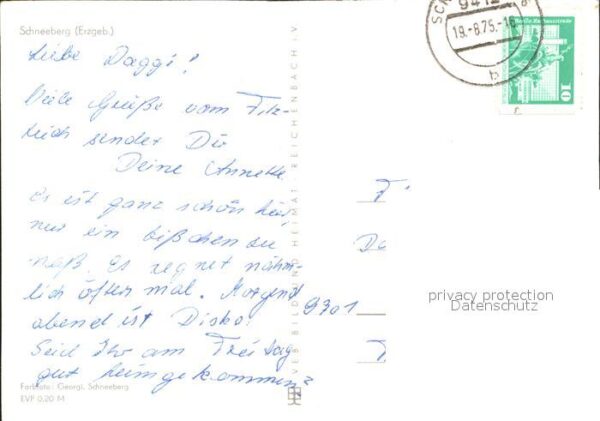 Schneeberg (Erzgeb.)
Liebe Daggi!
Viele Grüße vom Filz-
teich sendet Dir
Deine Annette
Es ist ganz schön hier,
nur ein bißchen zu
naß. Es regnet nähm-
lich öfter mal. Morgend
abend ist Disko!
Seid Ihr am Freitag
gut heimgekommen?
Farbfoto: Georgi, Schneeberg
EVP 0,20 M
VEB BILD UND HEIMAT REICHENBACH i.V.
9412
19.-8.75.-16
b
10
9301
privacy protection
Datenschutz